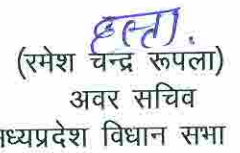 हस्ता.
(रमेश चन्द्र रूपला)
अवर सचिव
मध्यप्रदेश विधान सभा